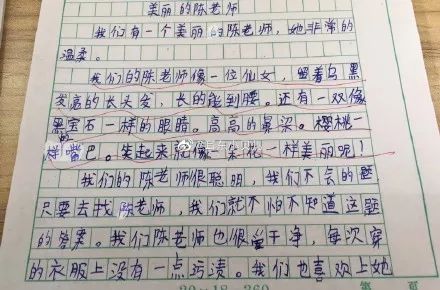 美丽的陈老师
我们有一个美丽的陈老师，她非常的
温柔。
我们的陈老师像一位仙女，留着乌黑
发亮的长头发，长的能到腰。还有一双像
黑宝石一样的眼睛。高高的鼻梁。樱桃一
样嘴巴。笑起来就像一朵花一样美丽呢！
我们的陈老师很聪明，我们不会的题
只要去找陈老师，我们就不怕不知道这题
的答案。我们陈老师也很爱干净，每次穿
的衣服上没有一点污渍。我们也喜欢上她
20×18=360
第 页